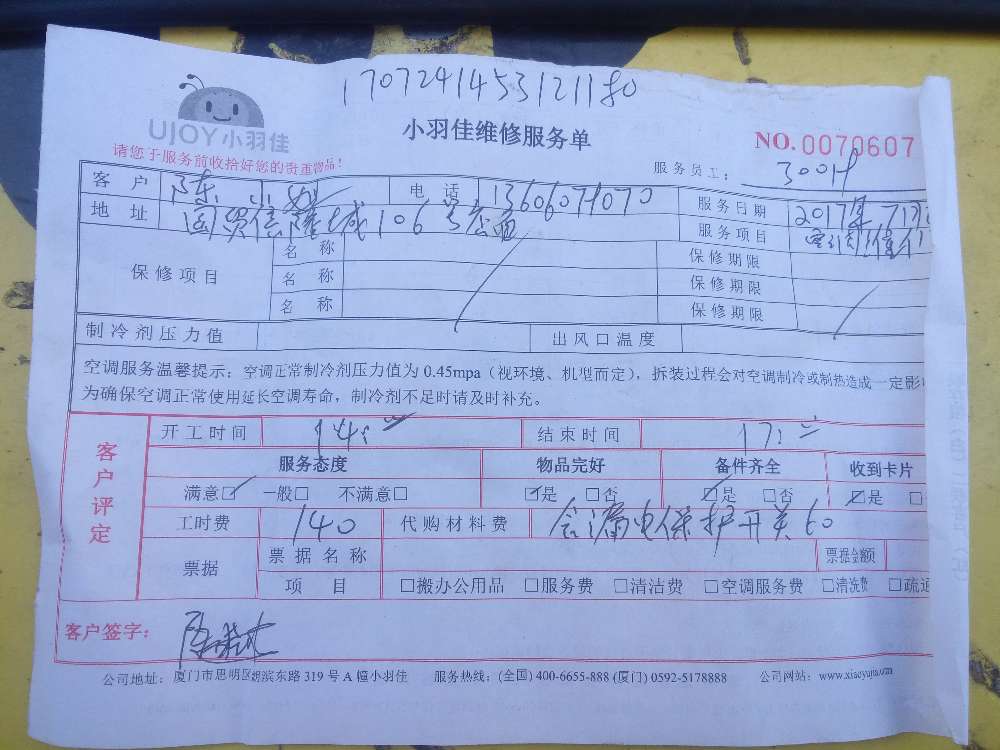 1707241453121180
UJOY小羽佳
小羽佳维修服务单
NO.0070607
请您于服务前收拾好您的贵重物品!
服务员工:
客户 陈 电话
服务日期 2017年
地址 国贸信隆城106
服务项目
保修项目
名称 保修期限
名称 保修期限
名称 保修期限
制冷剂压力值 出风口温度
空调服务温馨提示:空调正常制冷剂压力值为 0.45mpa(视环境、机型而定),拆装过程会对空调制冷或制热造成一定影
为确保空调正常使用延长空调寿命,制冷剂不足时请及时补充。
客户评定
开工时间 14: 结束时间 17:
服务态度 物品完好 备件齐全 收到卡片
满意☑ 一般□ 不满意□ ☑是 □否 ☑是 □否 ☑是 □
工时费 140 代购材料费 含漏电保护开关60
票据 票据名称 票据金额
项目 □搬办公用品 □服务费 □清洁费 □空调服务费 □清洗费 □疏通
客户签字:
公司地址:厦门市思明区湖滨东路 319 号 A 幢小羽佳 服务热线:(全国) 400-6655-888 (厦门) 0592-5178888 公司网站:www.xiaoyujia.com